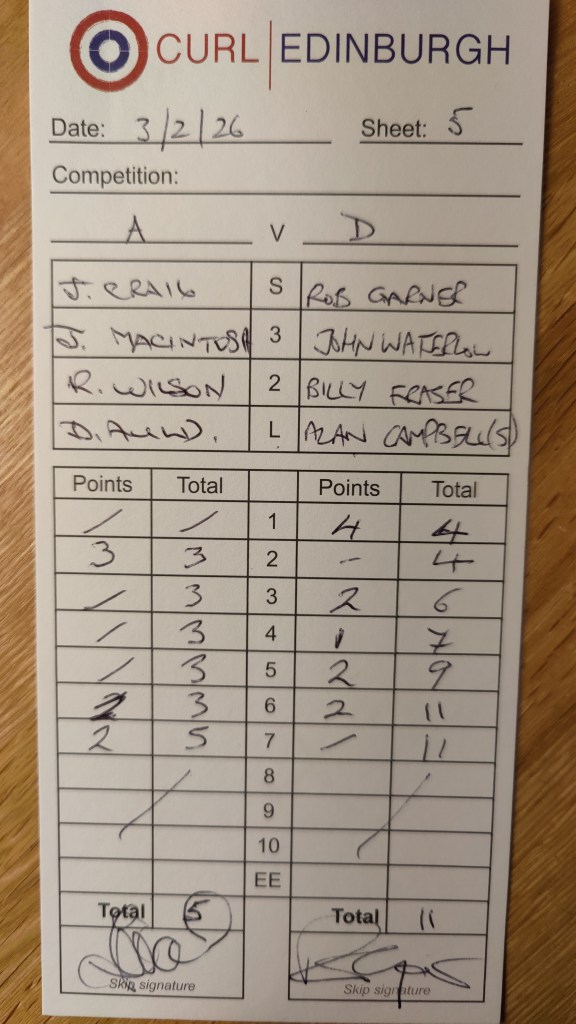 CURL EDINBURGH
Date: 3/2/26 Sheet: 5
Competition:
A V D
J. CRAIG S ROB GARNER
J. MACINTOSH 3 JOHN WATERLOW
R. WILSON 2 BILLY FRASER
D. L ALAN CAMPBELL(S)
Points Total Points Total
/ / 1 4 4
3 3 2 - 4
/ 3 3 2 6
/ 3 4 1 7
/ 3 5 2 9
3 6 2 11
2 5 7 / 11
8
9
10
EE
Total 5 Total 11
Skip signature Skip signature